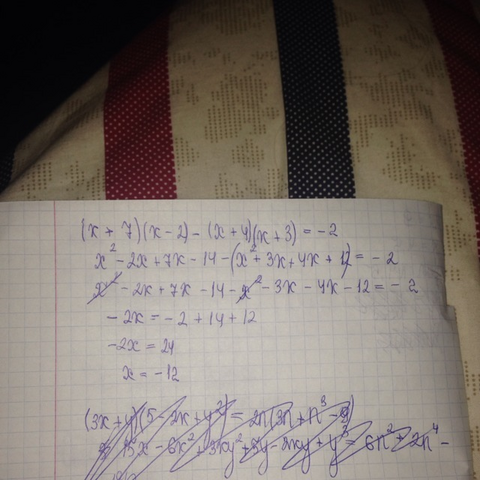 (x + 7)(x - 2) - (x + 4)(x + 3) = -2
x² - 2x + 7x - 14 - (x² + 3x + 4x + 12) = -2
x² - 2x + 7x - 14 - x² - 3x - 4x - 12 = -2
-2x = -2 + 14 + 12
-2x = 24
x = -12
(3x + y)(5 - 2x + y²) = 2n(3n + n³ - 9)
15x - 6x² + 3xy² + 5y - 2xy + y³ = 6n² + 2n⁴ -